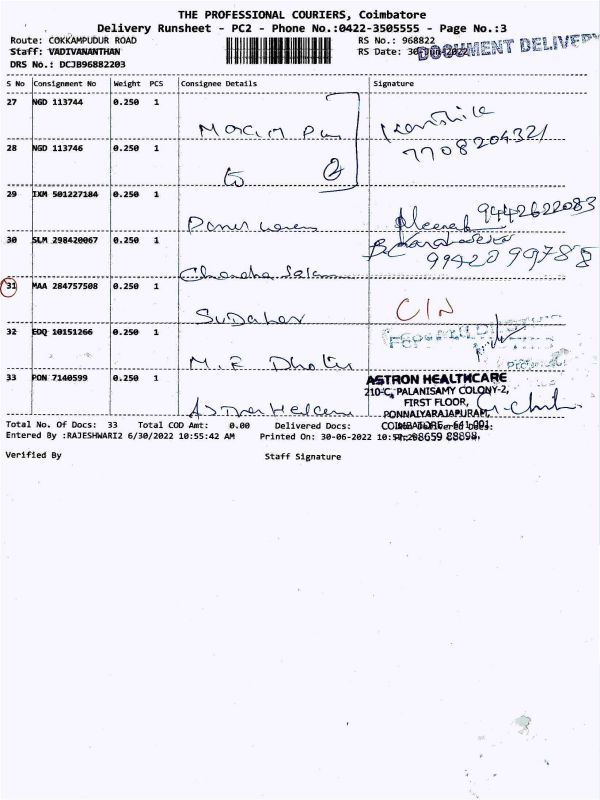 THE PROFESSIONAL COURIERS, Coimbatore
Delivery Runsheet - PC2 - Phone No.:0422-3505555 - Page No.:3
Route: COKKAMPUDUR ROAD
RS No.: 968822
Staff: VADIVANANTHAN
RS Date: 30-Jun-2022
DOCUMENT DELIVERY
DRS No.: DCJB96882203
S No Consignment No Weight PCS Consignee Details Signature
27 NGD 113744 0.250 1
Kanshika
7708204321
28 NGD 113746 0.250 1
to 2
29 IXM 501227184 0.250 1
9442622083
30 SLM 298420067 0.250 1
9942099788
31 MAA 284757508 0.250 1
Sudaher
CIN
32 EDQ 10151266 0.250 1
M.E
33 PON 7140599 0.250 1
ASTRON HEALTHCARE
210-C, PALANISAMY COLONY-2,
FIRST FLOOR,
PONNAIYARAJAPURAM,
COIMBATORE - 641 001.
Total No. Of Docs: 33 Total COD Amt: 0.00 Delivered Docs:
Entered By :RAJESHWARI2 6/30/2022 10:55:42 AM Printed On: 30-06-2022
98659 88898,
Verified By Staff Signature